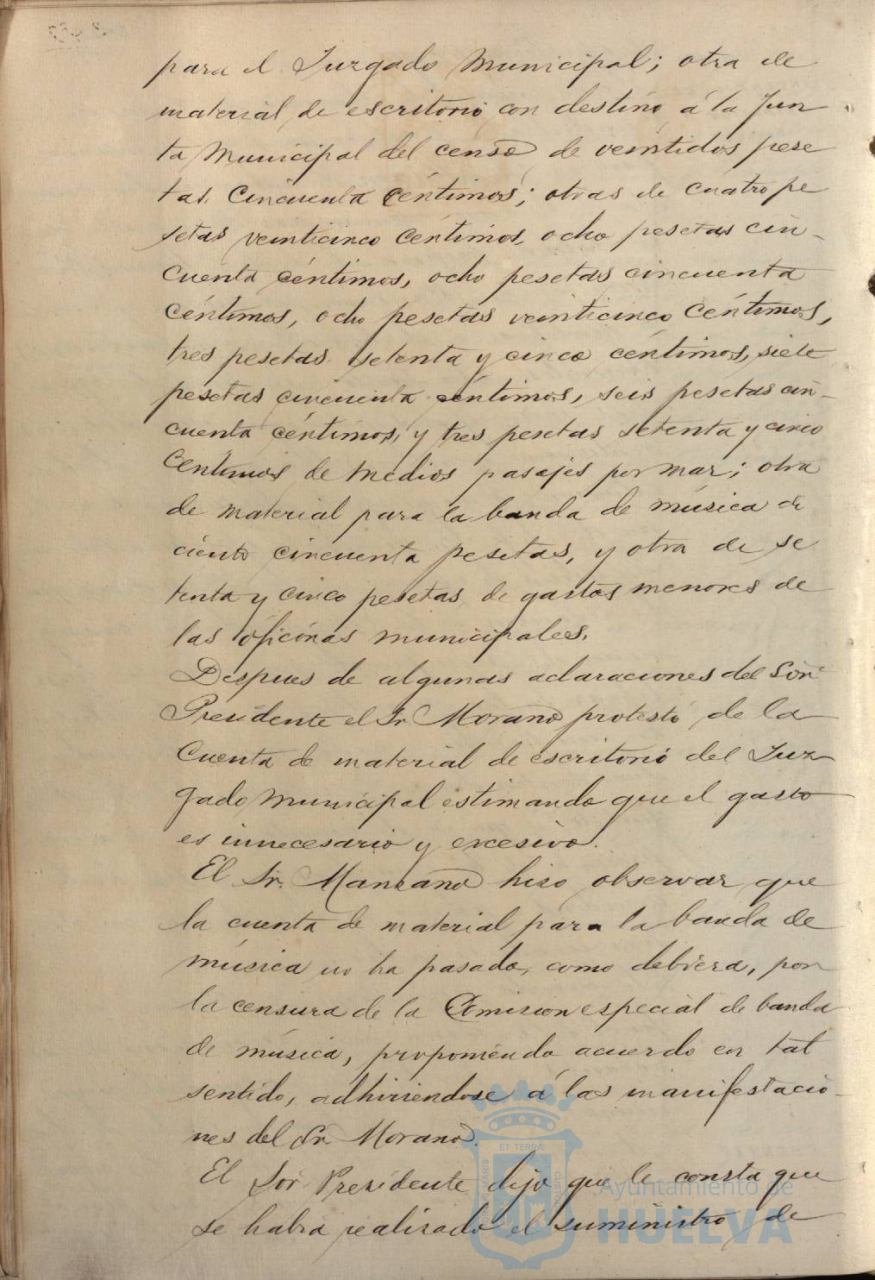 para el Juzgado Municipal; otra de
material de escritorio con destino á la Jun
ta Municipal del censo de veintidos pese
tas cincuenta céntimos; otras de cuatro pe
setas veinticinco céntimos, ocho pesetas cin-
cuenta céntimos, ocho pesetas cincuenta
céntimos, ocho pesetas veinticinco céntimos,
tres pesetas setenta y cinco céntimos, siete
pesetas cincuenta céntimos, seis pesetas cin-
cuenta céntimos, y tres pesetas setenta y cinco
céntimos de medios pasajes por mar; otra
de material para la banda de música de
ciento cincuenta pesetas, y otra de se
tenta y cinco pesetas de gastos menores de
las oficinas municipales.
Despues de algunas aclaraciones del Sor
Presidente el Sr. Morano protestó de la
cuenta de material de escritorio del Juz-
gado Municipal estimando que el gasto
es innecesario y excesivo.
El Sr. Manzano hizo observar que
la cuenta de material para la banda de
música no ha pasado, como debiera, por
la censura de la Comision especial de banda
de música, proponiendo acuerdo en tal
sentido, adhiriendose á las manifestacio-
nes del Sr. Morano.
El Sor. Presidente dijo que le consta que
se habia realizado el suministro de
ET TERRÆ
Ayuntamiento de
HUELVA